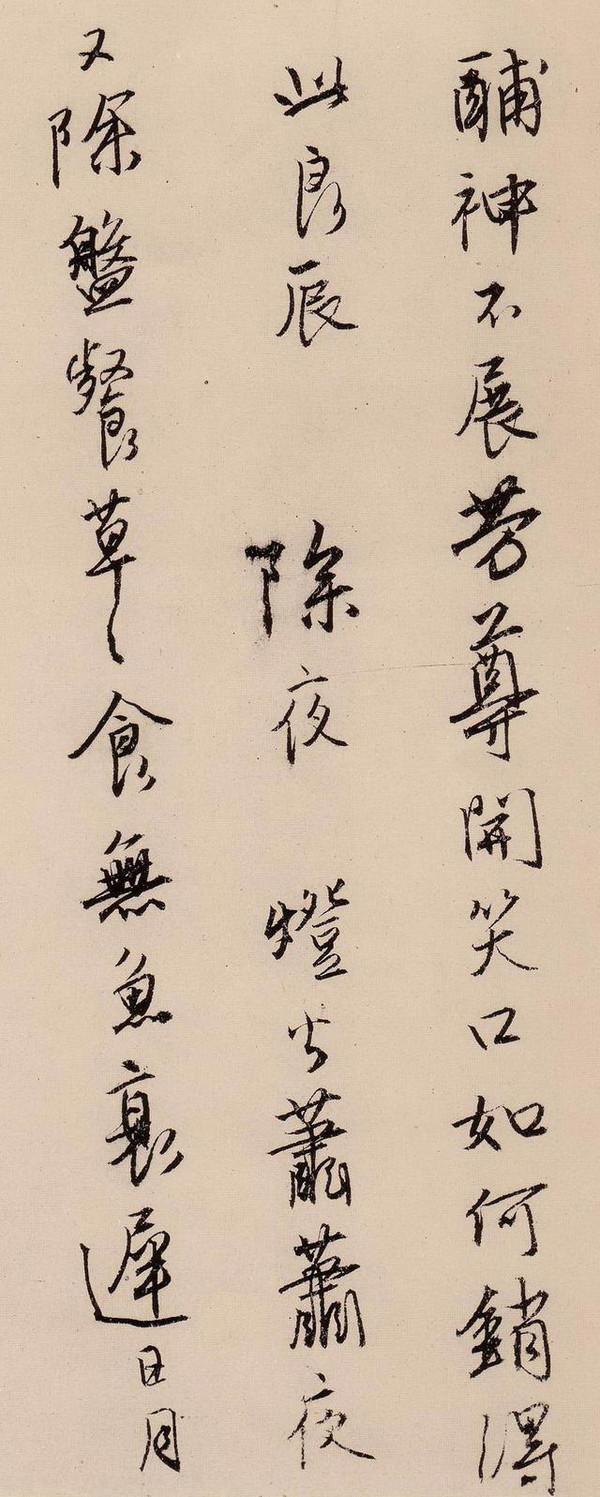 酺神不展芳尊開笑口如何銷得
此良辰 除夜 燈火蕭蕭夜
又除盤餐草〻食無魚衰遲日月